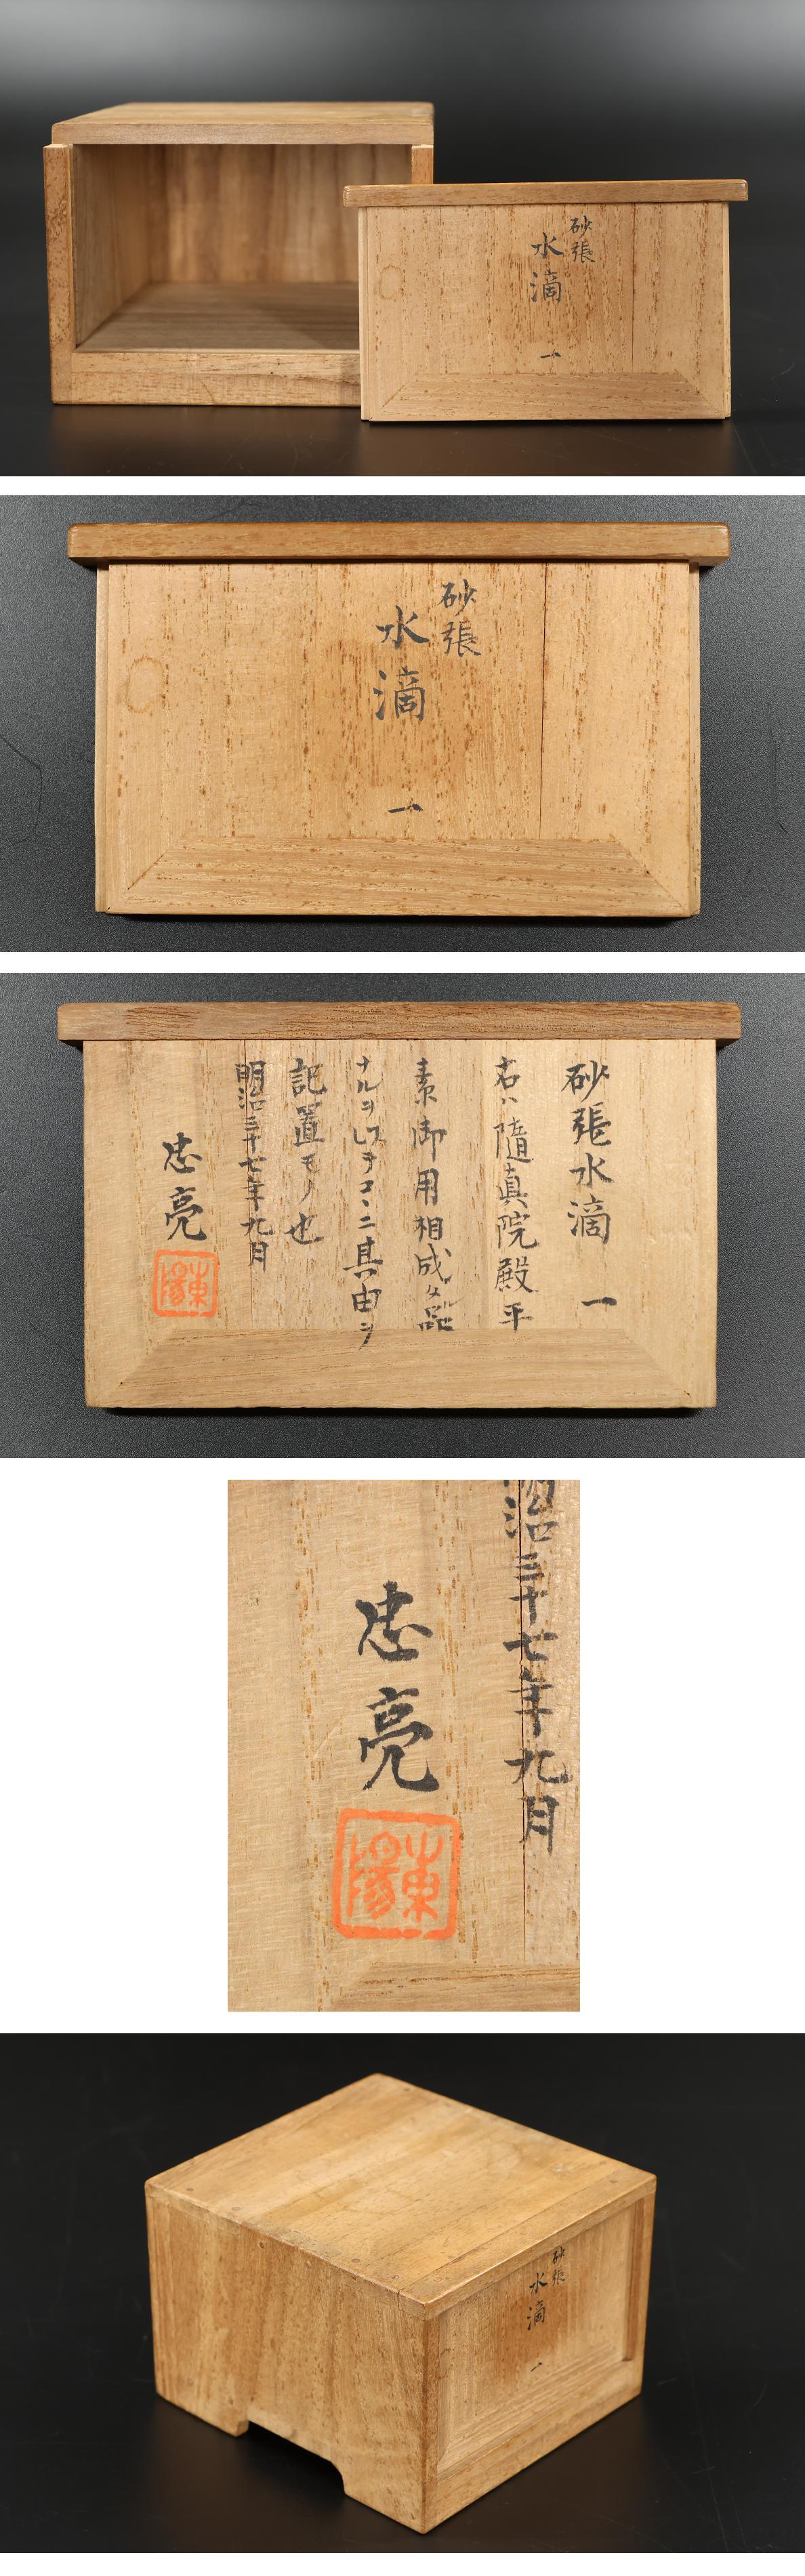 砂張
水滴
一
砂張
水滴
一
砂張水滴 一
右ハ隨真院殿平
素御用相成候品
ナルヲ以テコヽニ其由ヲ
記置モノ也
明治三十七年九月
忠亮
東陽
明治三十七年九月
忠亮
東陽
砂張
水滴
一